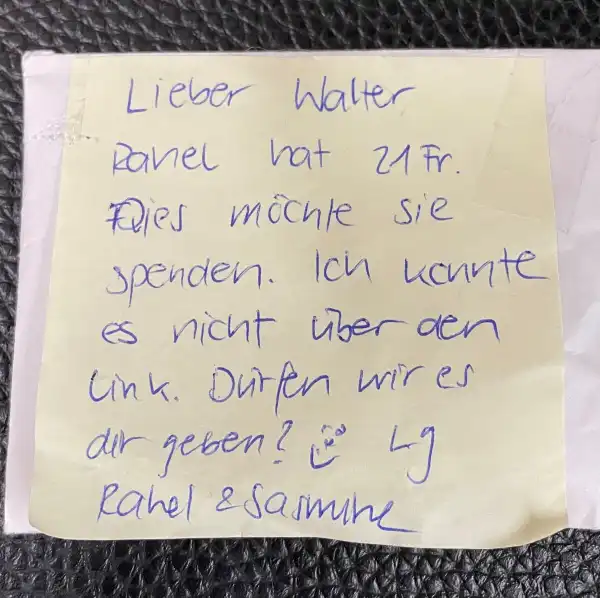 Lieber Walter
Rahel hat 21 Fr.
Dies möchte sie
spenden. Ich konnte
es nicht über den
Link. Dürfen wir es
dir geben? Lg
Rahel & Jasmine